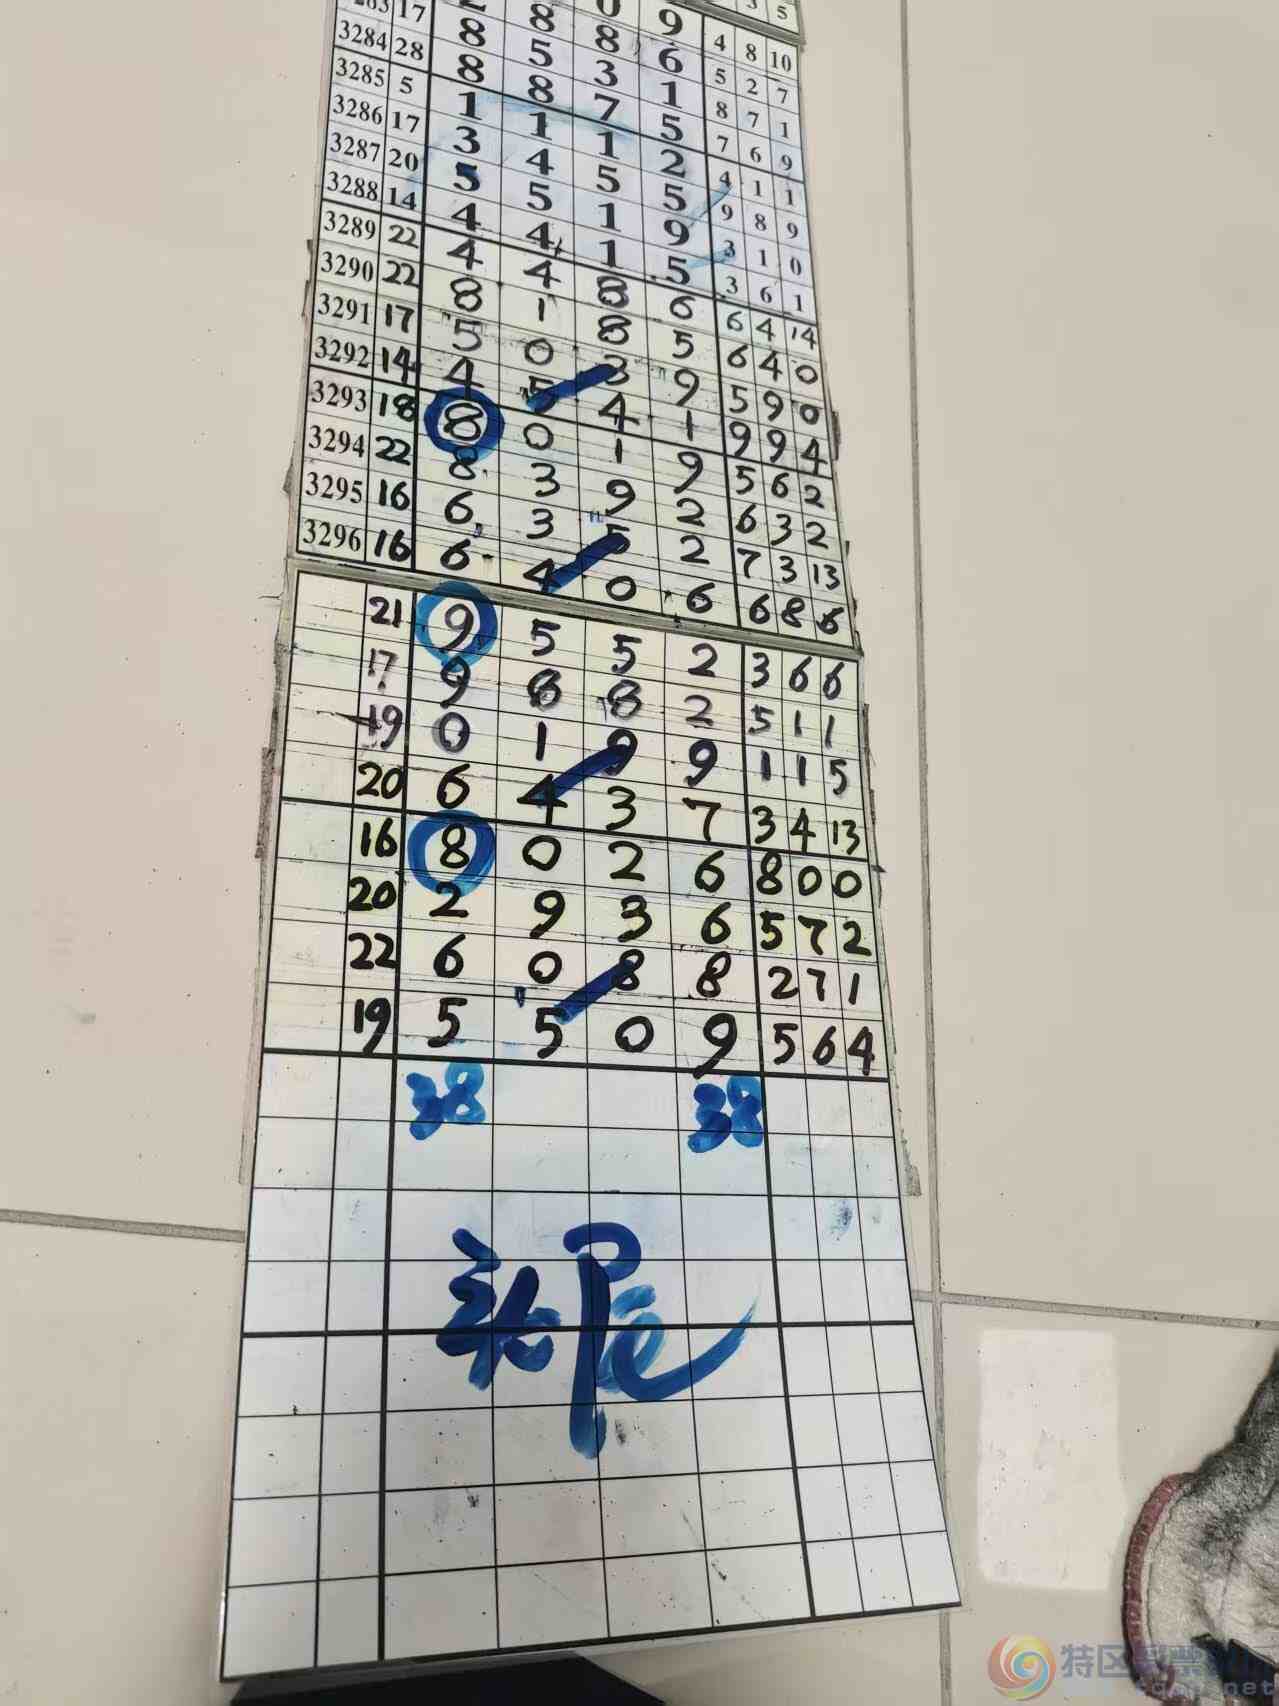 0 9 4 8 10
2 8 8 6 5 2 7
17 8 5 3 1 8 7 1
3284 28 8 8 7 5 7 6 9
3285 5 1 1 1 2 4 1 1
3286 17 3 4 5 5 9 8 9
3287 20 5 5 1 9 3 1 0
3288 14 4 4 1 5 3 6 1
3289 22 4 4 8 6 6 4 14
3290 22 8 1 8 5 6 4 0
3291 17 5 0 3 9 5 9 0
3292 14 4 5 4 1 9 9 4
3293 18 8 0 1 9 5 6 2
3294 22 8 3 9 2 6 3 2
3295 16 6 3 5 2 7 3 13
3296 16 6 4 0 6 6 8 6
21 9 5 5 2 3 6 6
17 9 8 2 5 1 1
19 0 1 9 9 1 1 5
20 6 4 3 7 3 4 13
16 8 0 2 6 8 0 0
20 2 9 3 6 5 7 2
22 6 0 8 8 2 7 1
19 5 5 0 9 5 6 4
38 38
头尾
特区彩票